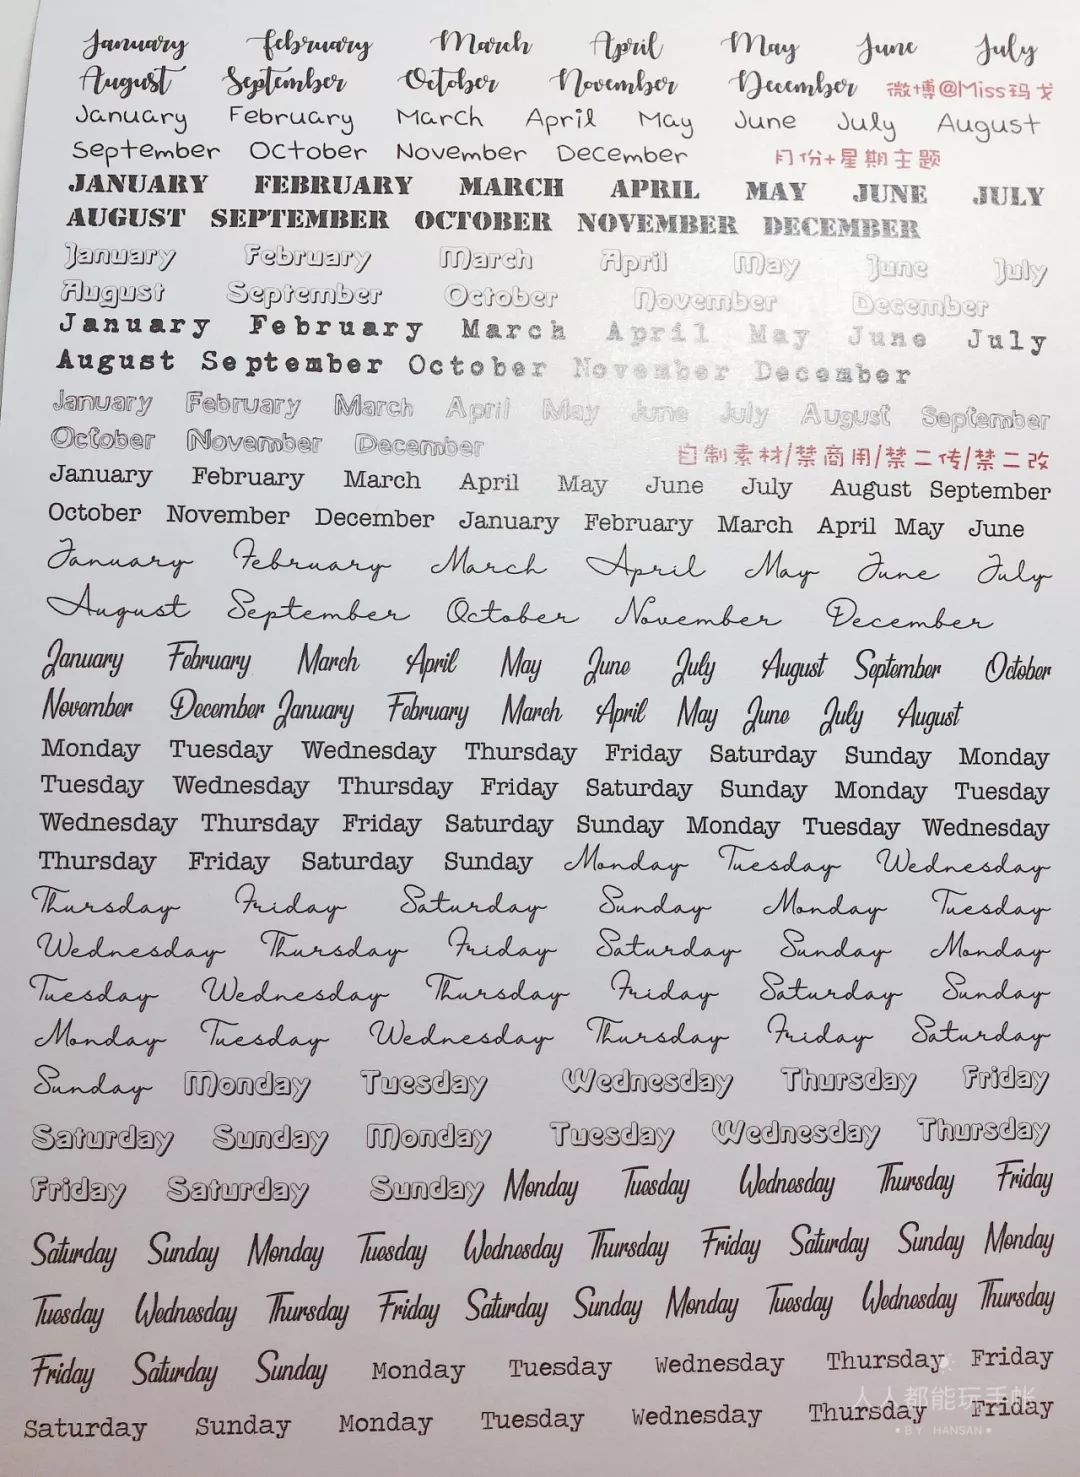 January February March April May June July
August September October November December 微博@Miss玛戈
January February March April May June July August
September October November December 月份+星期主题
JANUARY FEBRUARY MARCH APRIL MAY JUNE JULY
AUGUST SEPTEMBER OCTOBER NOVEMBER DECEMBER
January February March April May June July
August September October November December
January February March April May June July
August September October November December
January February March April May June July August September
October November December 自制素材/禁商用/禁二传/禁二改
January February March April May June July August September
October November December January February March April May June
January February March April May June July
August September October November December
January February March April May June July August September October
November December January February March April May June July August
Monday Tuesday Wednesday Thursday Friday Saturday Sunday Monday
Tuesday Wednesday Thursday Friday Saturday Sunday Monday Tuesday
Wednesday Thursday Friday Saturday Sunday Monday Tuesday Wednesday
Thursday Friday Saturday Sunday Monday Tuesday Wednesday
Thursday Friday Saturday Sunday Monday Tuesday
Wednesday Thursday Friday Saturday Sunday Monday
Tuesday Wednesday Thursday Friday Saturday Sunday
Monday Tuesday Wednesday Thursday Friday Saturday
Sunday Monday Tuesday Wednesday Thursday Friday
Saturday Sunday Monday Tuesday Wednesday Thursday
Friday Saturday Sunday Monday Tuesday Wednesday Thursday Friday
Saturday Sunday Monday Tuesday Wednesday Thursday Friday Saturday Sunday Monday
Tuesday Wednesday Thursday Friday Saturday Sunday Monday Tuesday Wednesday Thursday
Friday Saturday Sunday Monday Tuesday Wednesday Thursday Friday
人人都能玩手帐
Saturday Sunday Monday Tuesday Wednesday Thursday Friday
BY HANSAN